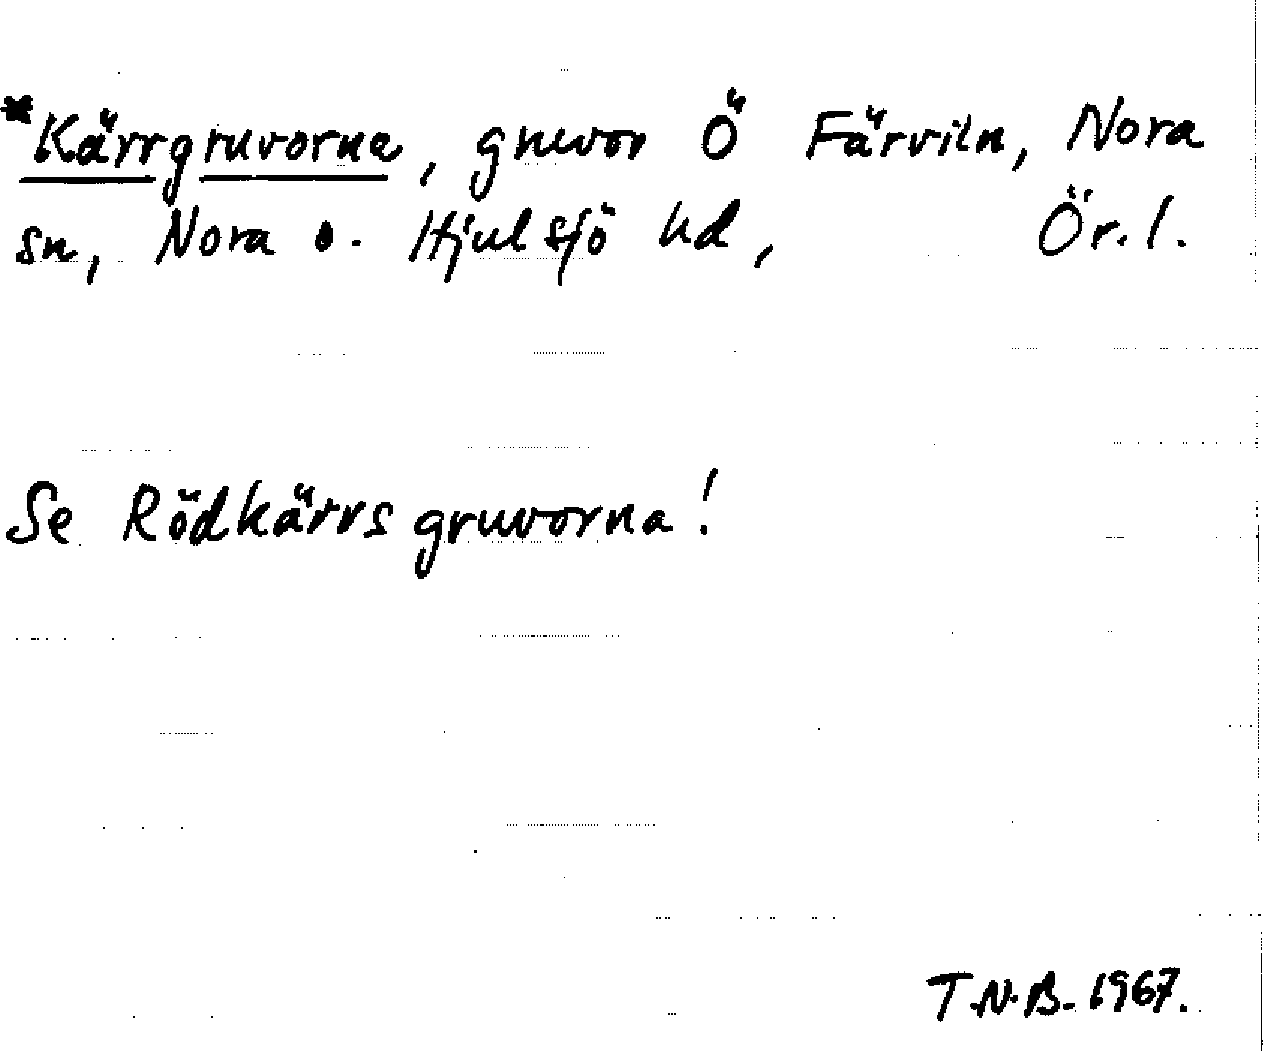 *Kärrgruvorna, gruvor Ö Färviln, Nora
sn, Nora o. Hjulsjö hd, Ör. l.
Se Rödkärrsgruvorna!
T.N.B. 1967.